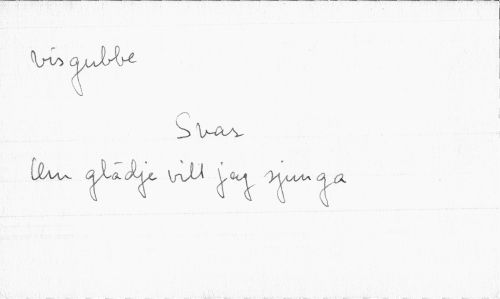 visgubbe
Svar
Om glädje vill jag sjunga